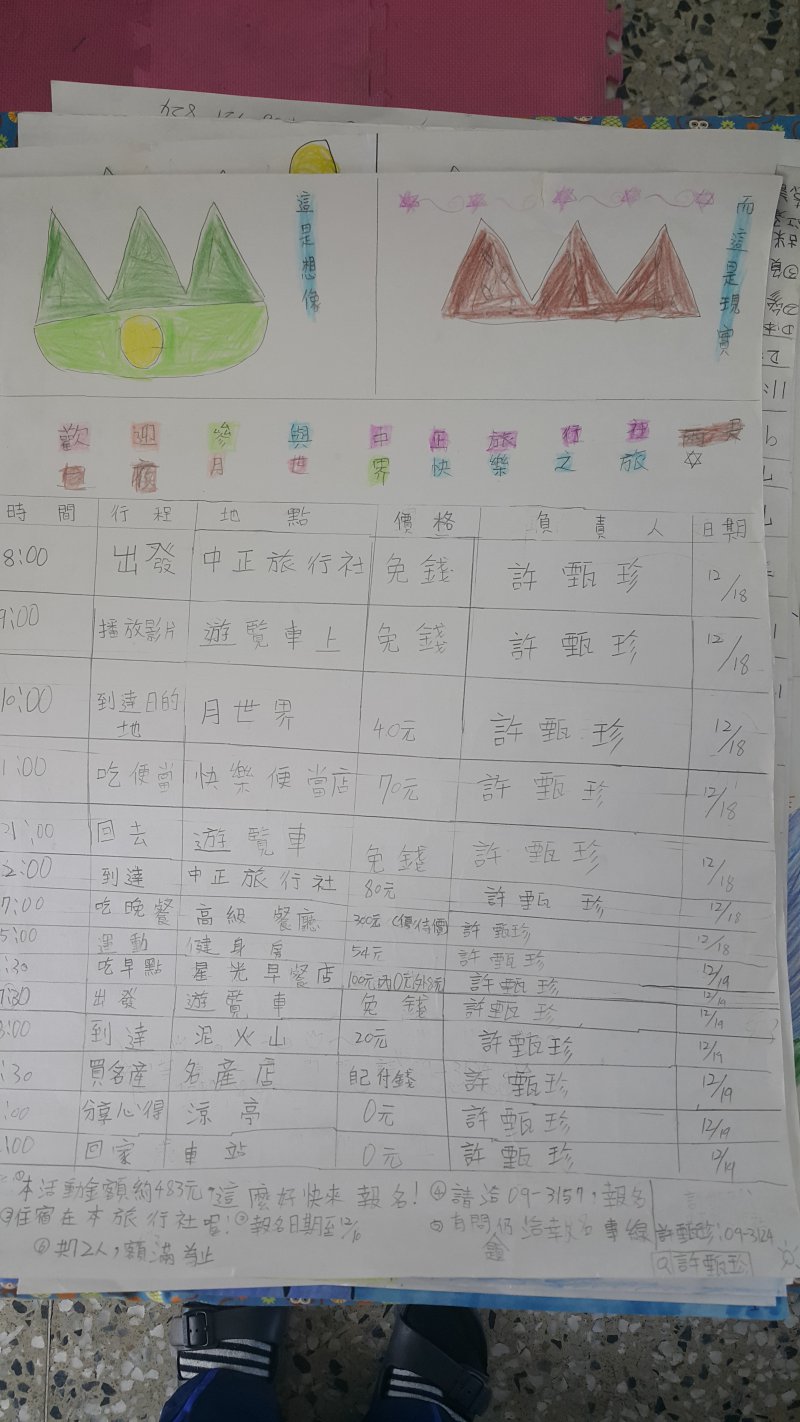 這是想像
而這是現實
歡迎參與中正旅行社
月世界快樂之旅☆
時間 行程 地點 價格 負責人 日期
8:00 出發 中正旅行社 免錢 許甄珍 12/18
9:00 播放影片 遊覽車上 免錢 許甄珍 12/18
10:00 到達目的地 月世界 40元 許甄珍 12/18
1:00 吃便當 快樂便當店 70元 許甄珍 12/18
21:00 回去 遊覽車 免錢 許甄珍 12/18
2:00 到達 中正旅行社 80元 許甄珍 12/18
7:00 吃晚餐 高級餐廳 300元(優待價) 許甄珍 12/18
5:00 運動 健身房 54元 許甄珍 12/19
:30 吃早點 星光早餐店 100元內0元 許甄珍 12/19
7:30 出發 遊覽車 免錢 許甄珍 12/19
8:00 到達 泥火山 20元 許甄珍 12/19
:30 買名產 名產店 自己付錢 許甄珍 12/19
:00 分享心得 涼亭 0元 許甄珍 12/19
:00 回家 車站 0元 許甄珍 12/19
本活動金額約483元,這麼好快來報名! ④請洽09-3157,報名
住宿在本旅行社喔!③報名日期至12/10 有問 專線許甄珍:09-3124
⑥共12人,額滿為止 許甄珍